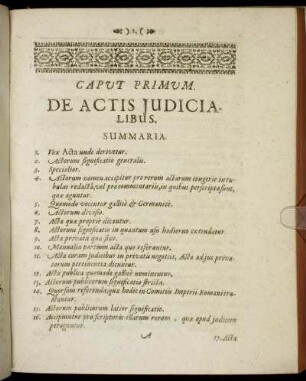 ) 1. (
CAPUT PRIMUM.
DE ACTIS JUDICIA-
LIBUS.
SUMMARIA.
1. Vox Acta unde derivetur.
2. Actorum significatio generalis.
3. Specialior.
4. Actorum nomen accipitur pro rerum actarum congerie in ta-
bulas redacta, vel pro commentariis, in quibus perscripta sunt,
quæ aguntur.
5. Quomodo vocentur gallicè & Germanicè.
6. Actorum divisio.
7. Acta quæ propriè dicantur.
8. Actorum significatio in quantum usu hodierno extendatur.
9. Acta privata quæ sint.
10. Manualia partium acta quo referantur.
11. Acta coram judicibus in privatis negotiis, Acta ad jus priva-
torum pertinentia dicuntur.
12. Acta publica quomodo gallicè nominentur.
13. Actorum publicorum significatio stricta.
14. Quorsum referenda, quæ hodie in Comitiis Imperii Romani tra-
ctantur.
15. Actorum publicorum latior significatio.
16. Accipiuntur pro scripturis illarum rerum, quæ apud judicem
peraguntur.
A
17. Acta